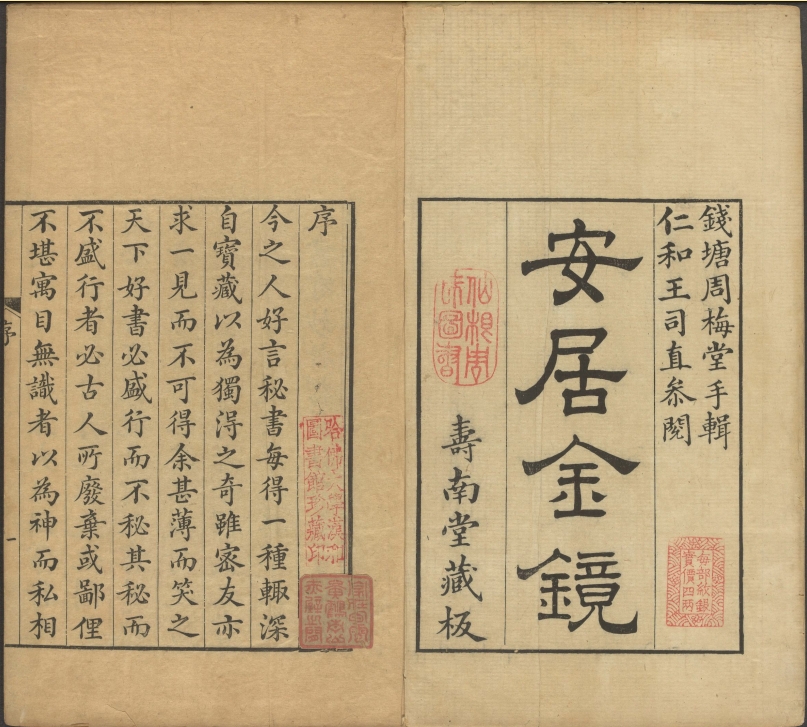 錢塘周梅堂手輯
仁和王司直叅閱
安居金鏡
壽南堂藏板
每部紋銀
實價四兩
序
今之人好言秘書每得一種輙深
自寶藏以為獨淂之奇雖密友亦
求一見而不可得余甚薄而笑之
天下好書必盛行而不秘其秘而
不盛行者必古人所廢棄或鄙俚
不堪寓目無識者以為神而私相
哈佛大學漢和
圖書館珍藏印
序
一